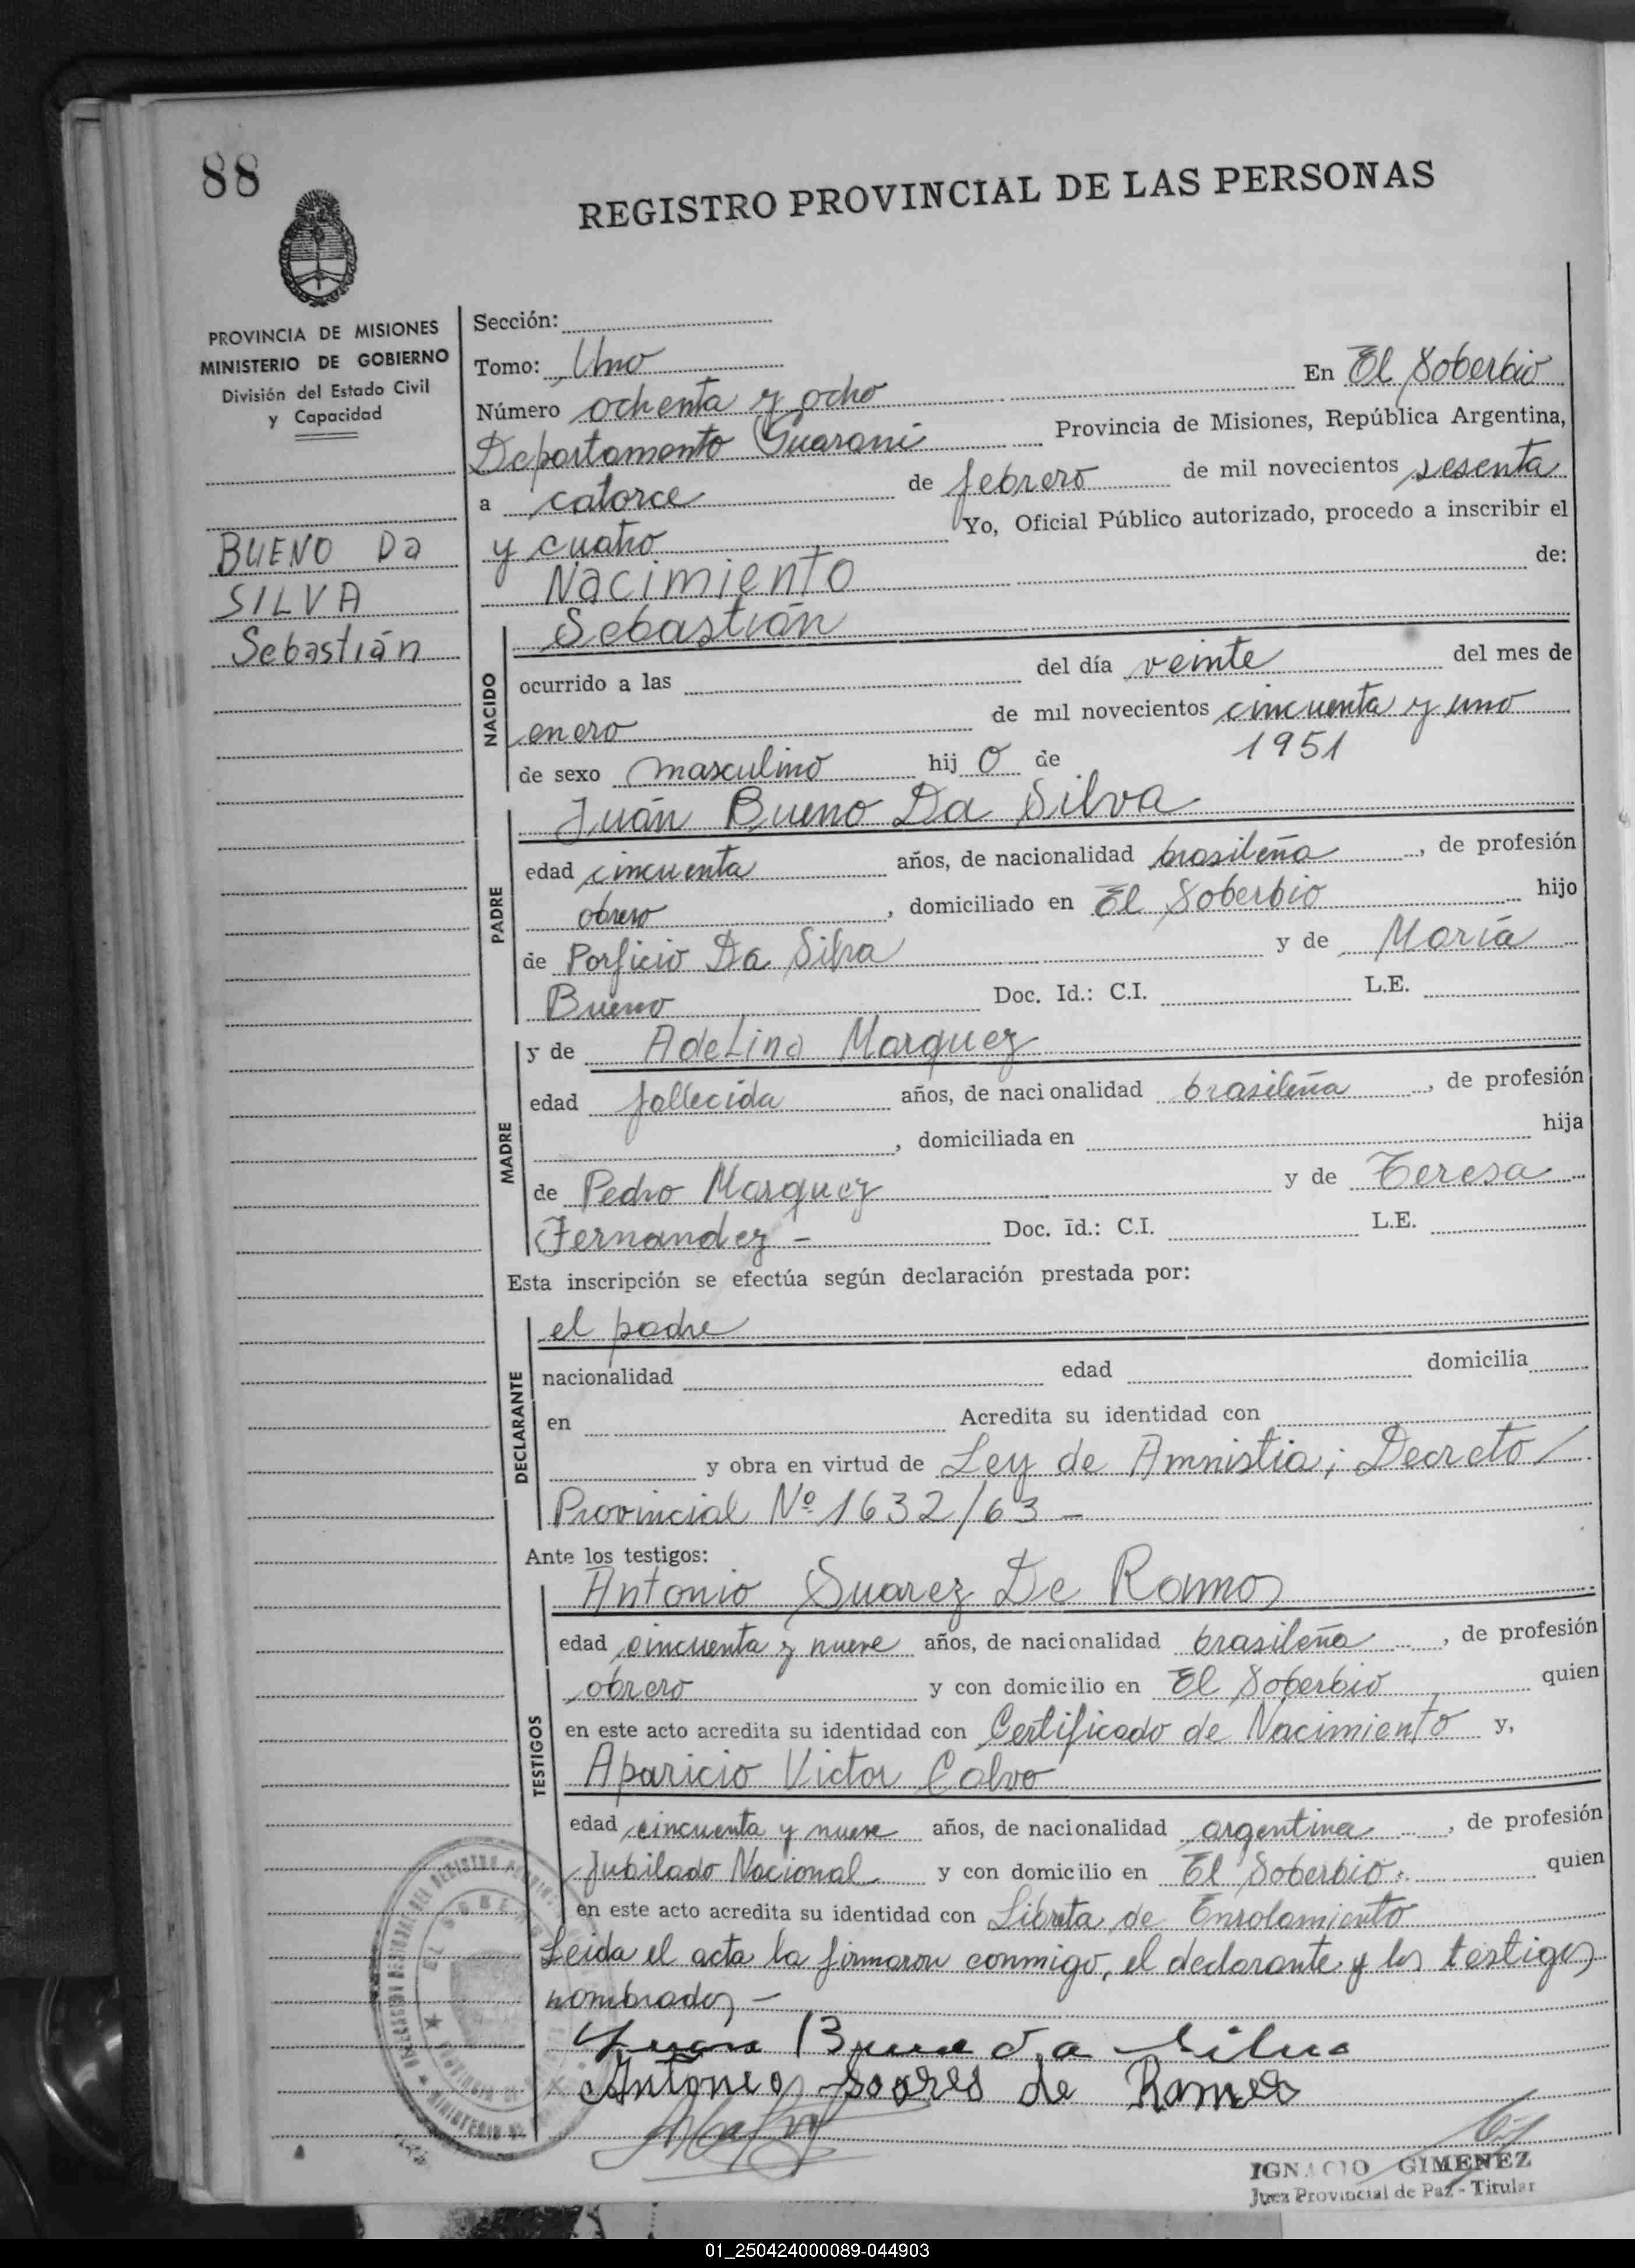 88
REGISTRO PROVINCIAL DE LAS PERSONAS
PROVINCIA DE MISIONES
MINISTERIO DE GOBIERNO
División del Estado Civil
y Capacidad
BUENO Da
SILVA
Sebastián
Sección:
Tomo: Uno
En El Soberbio
Número ochenta y ocho
Departamento Guaraní Provincia de Misiones, República Argentina,
a catorce de febrero de mil novecientos sesenta
y cuatro Yo, Oficial Público autorizado, procedo a inscribir el
Nacimiento de:
NACIDO
Sebastián
ocurrido a las del día veinte del mes de
enero de mil novecientos cincuenta y uno
1951
de sexo masculino hij o de
PADRE
Juán Bueno Da Silva
edad cincuenta años, de nacionalidad brasileña, de profesión
obrero, domiciliado en El Soberbio hijo
de Porficio Da Silva y de María
Bueno Doc. Id.: C.I. L.E.
MADRE
y de Adelina Marquez
edad fallecida años, de nacionalidad brasileña, de profesión
, domiciliada en hija
de Pedro Marquez y de Teresa
Fernandez - Doc. Id.: C.I. L.E.
Esta inscripción se efectúa según declaración prestada por:
DECLARANTE
el padre
nacionalidad edad domicilia
en Acredita su identidad con
y obra en virtud de Ley de Amnistia; Decreto/
Provincial Nº 1632/63 -
Ante los testigos:
TESTIGOS
Antonio Suarez De Ramos
edad cincuenta y nueve años, de nacionalidad brasileña, de profesión
obrero y con domicilio en El Soberbio quien
en este acto acredita su identidad con Certificado de Nacimiento y,
Aparicio Victor Calvo
edad cincuenta y nueve años, de nacionalidad argentina, de profesión
Jubilado Nacional y con domicilio en El Soberbio. quien
en este acto acredita su identidad con Libreta de Enrolamiento
Leida el acta la firmaron conmigo, el declarante y los testigos
nombrados -
Juan Bueno da Silva
Antonio Soares de Ramos
IGNACIO GIMENEZ
Juez Provincial de Paz - Titular
01_250424000089-044903